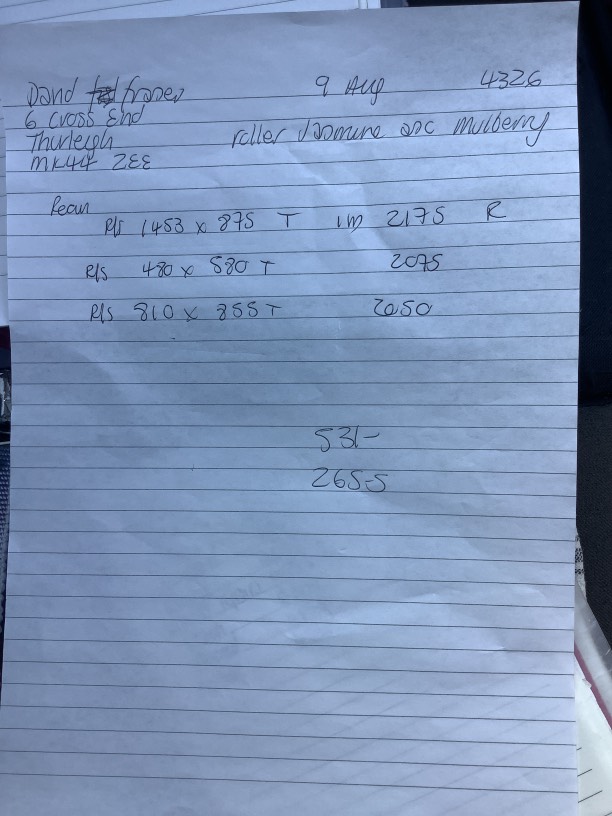 David Fraser 9 Aug 4326
6 Cross End
Thurleigh roller Jasmine asc Mulberry
MK44 2EE
Recm
R/S 1453 x 875 T 1m 2175 R
R/S 480 x 580 T 2075
R/S 810 x 855 T 2050
531-
265-5